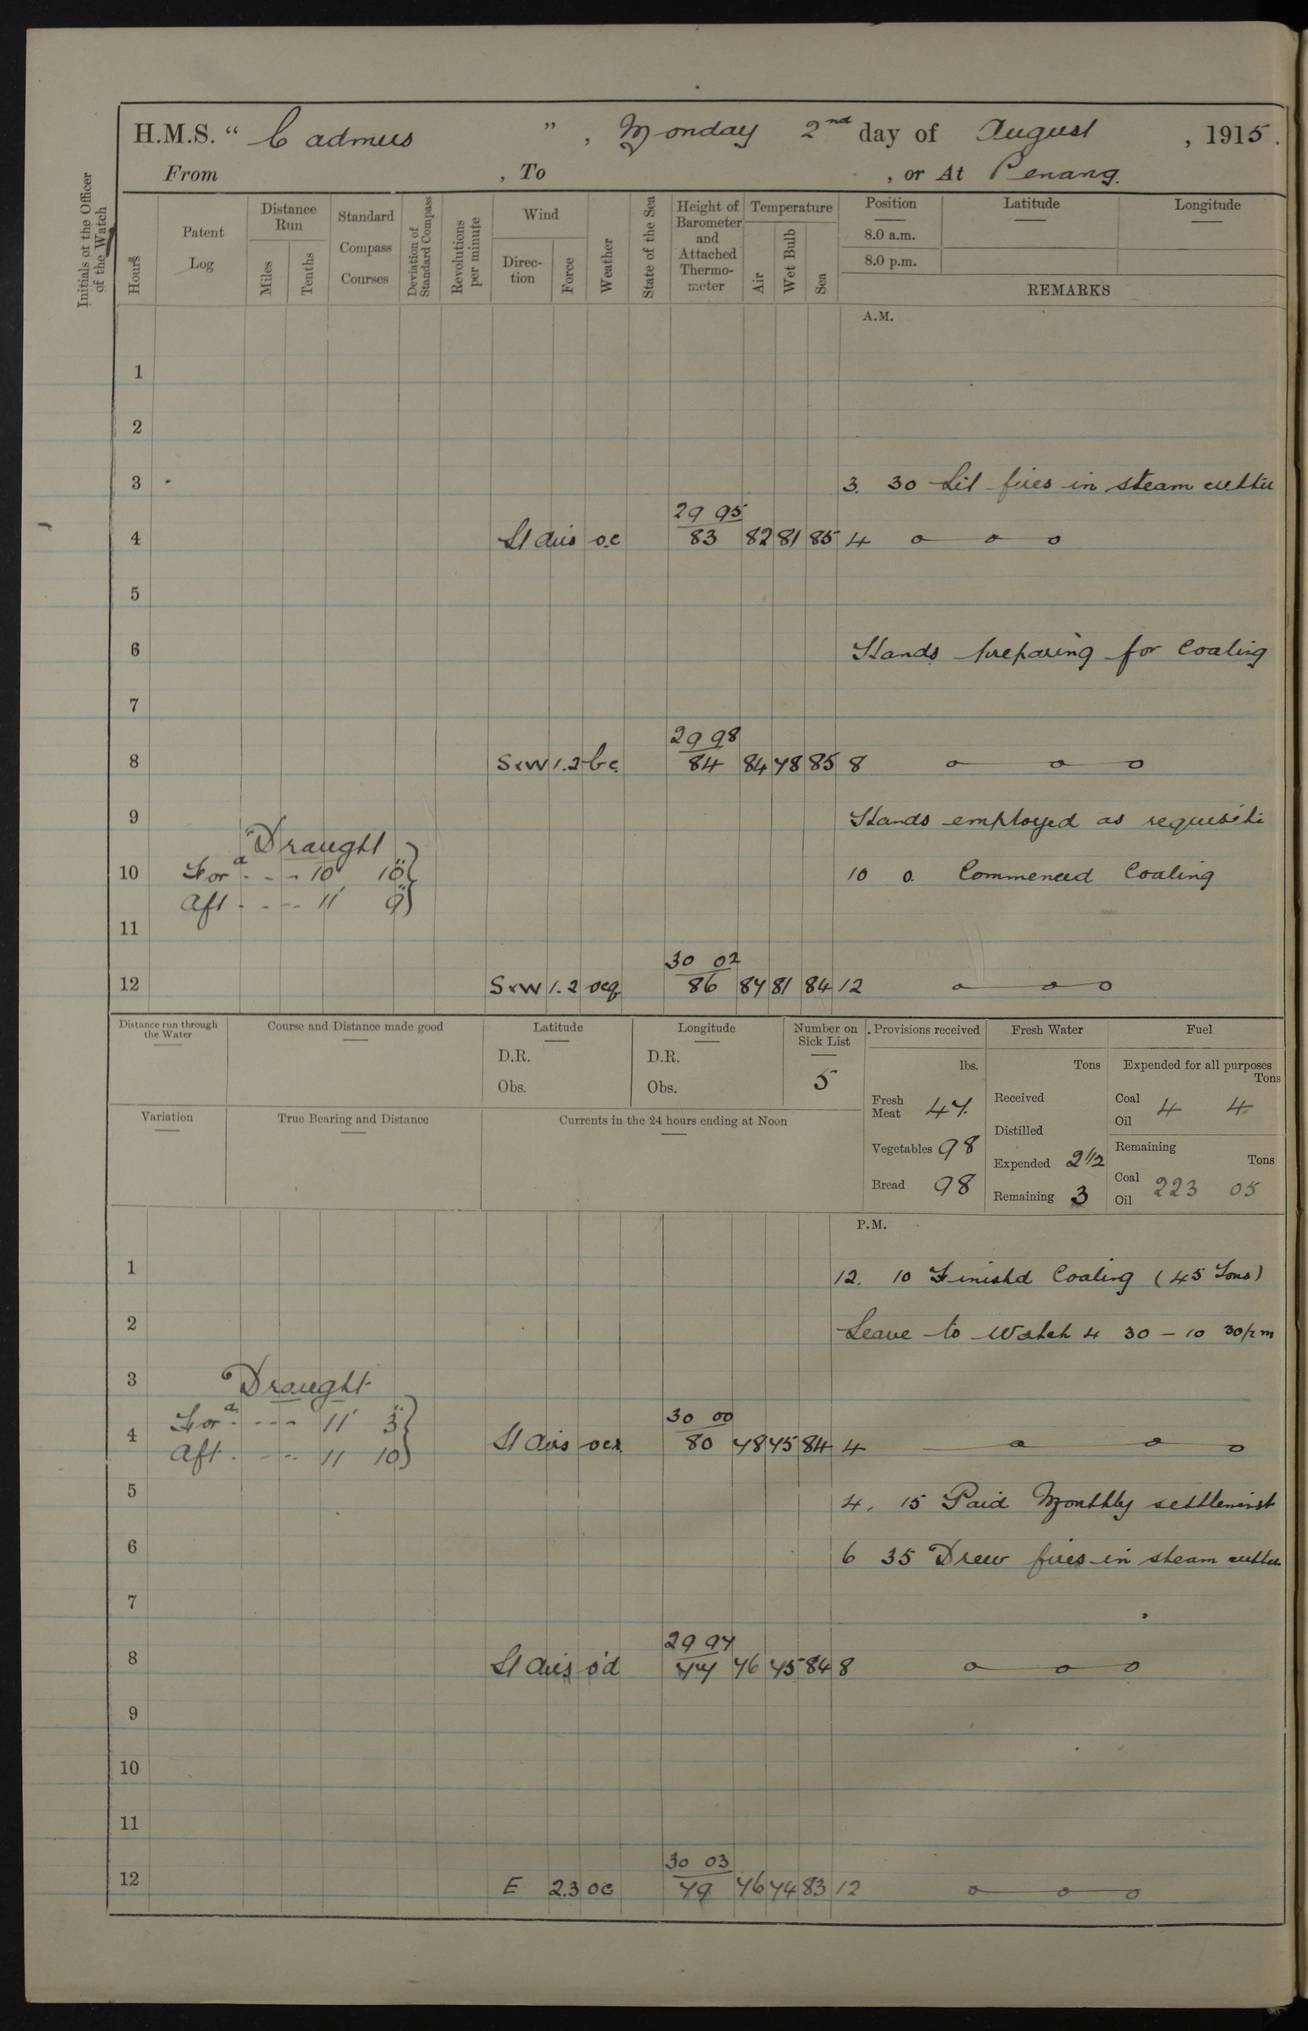 H.M.S. "Cadmus", Monday 2nd day of August, 1915.
From , To , or At Penang.
Initials of the Officer of the Watch
Hours
Patent Log
Distance Run
Miles
Tenths
Standard Compass Courses
Deviation of Standard Compass
Revolutions per minute
Wind
Direction
Force
Weather
State of the Sea
Height of Barometer and Attached Thermometer
Temperature
Air
Wet Bulb
Sea
Position
8.0 a.m.
8.0 p.m.
Latitude
Longitude
REMARKS
A.M.
1
2
3 3. 30 Lit fires in steam cutter
29 95
4 Lt airs o.c 83 82 81 85 4 o o o
5
6 Hands preparing for Coaling
7
29 98
8 SxW 1.2 bc 84 84 78 85 8 o o o
9 Hands employed as requisite
Draught
10 Ford. - - 10' 10" 10 0. Commenced Coaling
Aft. - - - 11' 9"
11
30 02
12 SxW 1.2 ocq 86 87 81 84 12 o o o
Distance run through the Water
Course and Distance made good
Latitude
D.R.
Obs.
Longitude
D.R.
Obs.
Number on Sick List
5
Provisions received
lbs.
Fresh Meat 47.
Vegetables 98
Bread 98
Fresh Water
Tons
Received
Distilled
Expended 2 1/2
Remaining 3
Fuel
Expended for all purposes
Tons
Coal
Oil 4 4
Remaining
Tons
Coal
Oil 223 05
Variation
True Bearing and Distance
Currents in the 24 hours ending at Noon
P.M.
1 12. 10 Finishd Coaling (45 Tons)
2 Leave to Watch 4 30 - 10 30 pm
3
Draught
Ford. - - - 11' 3"
30 00
4 Lt airs ocr 80 78 75 84 4 o o o
Aft. - - - 11 10
5 4. 15 Paid Monthly settlement
6 6 35 Drew fires in steam cutter
7
29 97
8 Lt airs o'd 77 76 75 84 8 o o o
9
10
11
30 03
12 E 2.3 oc 79 76 74 83 12 o o o